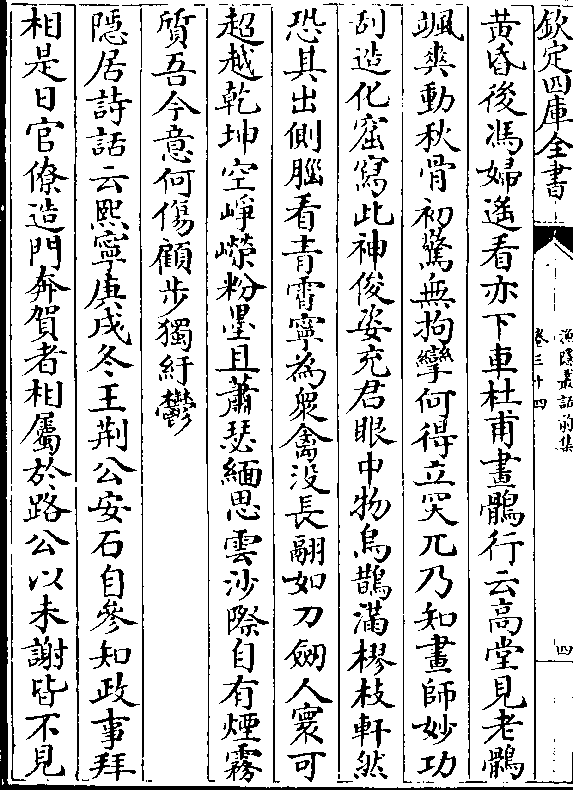 欽定四庫全書
漁隱叢話前集
卷三十四
四
黄昏後馮婦遥看亦下車杜甫畫鶻行云高堂見老鶻
颯爽動秋骨初驚無拘攣何得立突兀乃知畫師妙功
刮造化窟寫此神俊姿充君眼中物烏鵲滿樛枝軒然
恐其出側腦看青霄寧為衆禽没長翮如刀劒人寰可
超越乾坤空峥嶸粉墨且蕭瑟緬思雲沙際自有煙霧
質吾今意何傷顧步獨紆鬱
隱居詩話云熙寧庚戌冬王荆公安石自參知政事拜
相是日官僚造門奔賀者相屬於路公以未謝皆不見